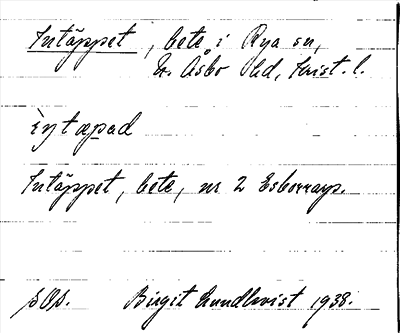 Intäppet, bete i Rya sn,
N. Åsbo hd, Krist. l.
Intäppet, bete, nr 2 Esborrarp.
Birgit Lundkvist 1938.